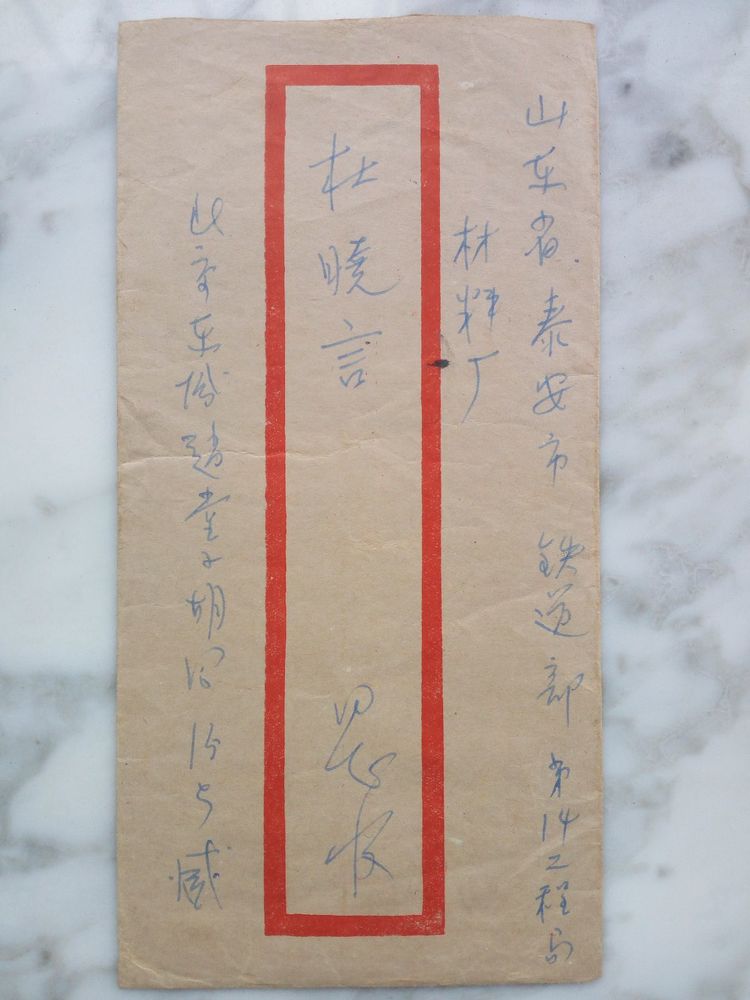 山东省.泰安市 铁道部 第14工程局
材料厂
杜晓言 同志收
北京东城趙堂子胡同15号 臧